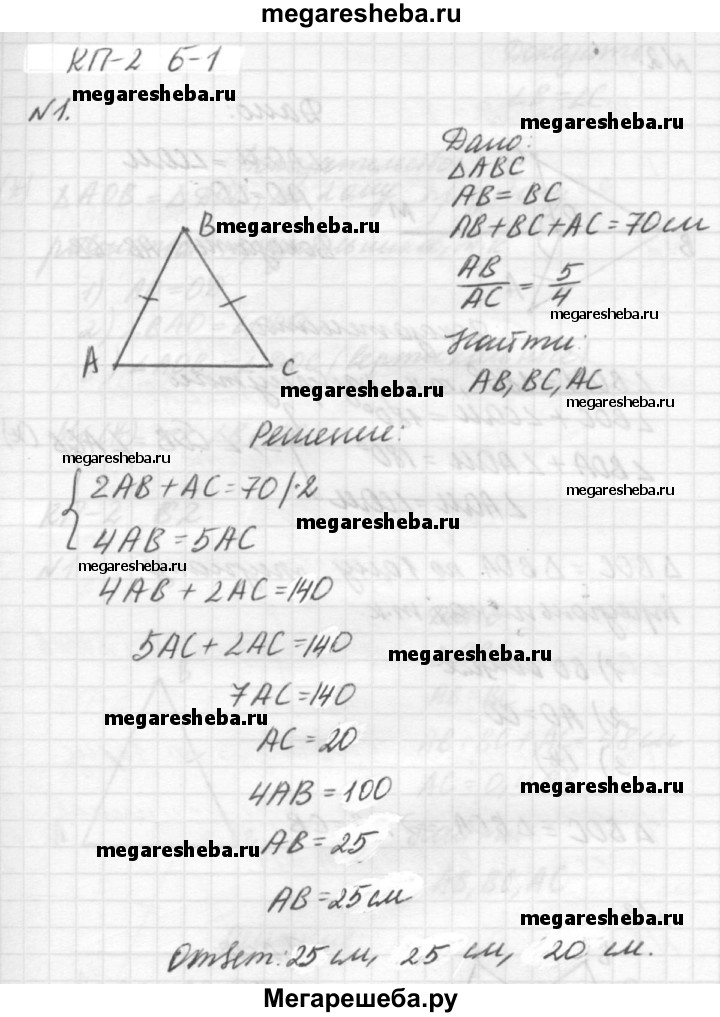 megaresheba.ru
КП-2 Б-1
megaresheba.ru
№1.
megaresheba.ru
Дано:
△ABC
AB = BC
megaresheba.ru
AB+BC+AC=70см
AB/AC = 5/4
B
A
C
Найти:
megaresheba.ru
AB, BC, AC
megaresheba.ru
Решение:
megaresheba.ru
{ 2AB + AC = 70 | ·2
megaresheba.ru
megaresheba.ru
4AB = 5AC
megaresheba.ru
4AB + 2AC = 140
5AC + 2AC = 140
megaresheba.ru
7AC = 140
megaresheba.ru
AC = 20
4AB = 100
megaresheba.ru
AB = 25
megaresheba.ru
AB = 25 см
megaresheba.ru
Ответ: 25 см, 25 см, 20 см.
Мегарешеба.ру